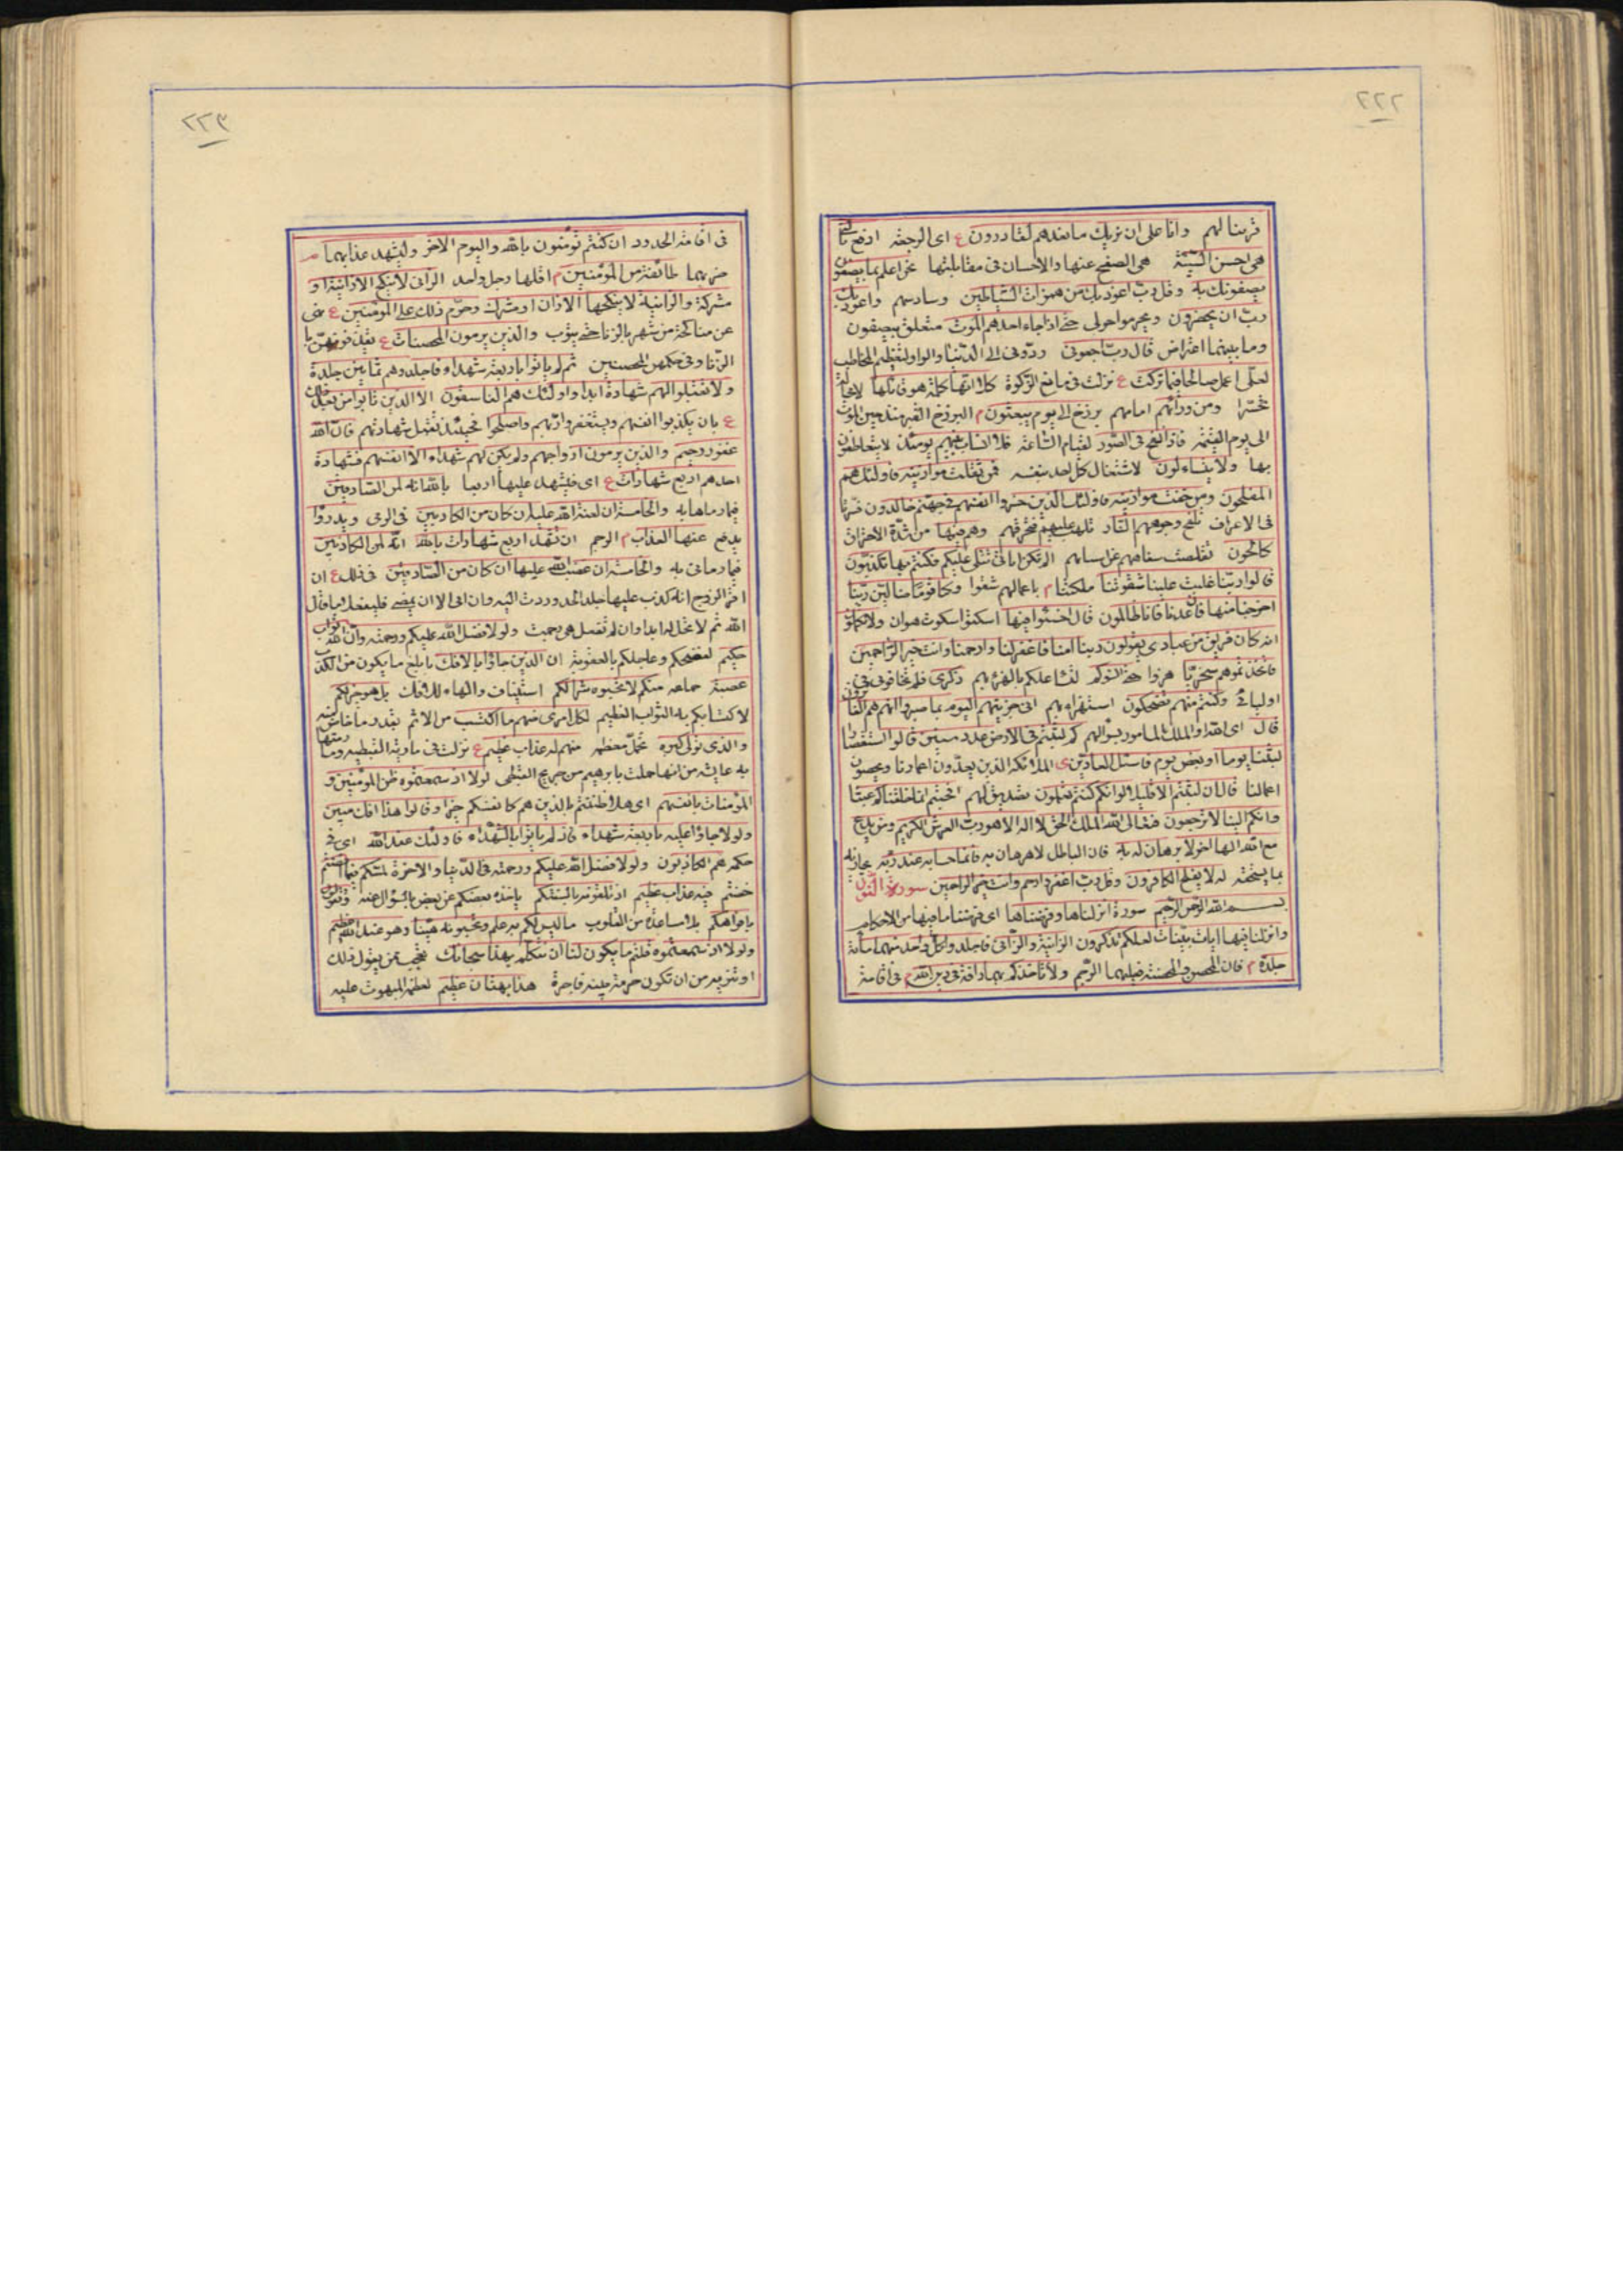 ٢٢٢
قربنا لهم وانا على ان نريك ما نعدهم لقادرون ع اى الرجعة ادفع بالتى
هى احسن السيئة هى الصفح عنها والاحسان فى مقابلتها نحن اعلم بما يصفون
يصفونك به وقل رب اعوذ بك من همزات الشياطين وساوسهم واعوذ بك
رب ان يحضرون ويحوموا حولى حتى اذا جاء احدهم الموت متعلق بيصفون
وما بينهما اعتراض قال رب ارجعونى ردونى الى الدنيا والواو لتعظيم المخاطب
لعلى اعمل صالحا فيما تركت ع نزلت فى مانع الزكوة كلا انها كلمة هو قائلها لا محالة
تحسّرا ومن ورائهم امامهم برزخ الى يوم يبعثون م البرزخ القبر منذ حين الموت
الى يوم القيمة فاذا نفخ فى الصور لقيام الساعة فلا انساب بينهم يومئذ لا يتعاطفون
بها ولا يتساءلون لاشتغال كل احد بنفسه فمن ثقلت موازينه فاولئك هم
المفلحون ومن خفت موازينه فاولئك الذين خسروا انفسهم فى جهنم خالدون فسرنا
فى الاعراف تلفح وجوههم النار تلهب عليهم فتحرقهم وهم فيها من شدة الاحتراق
كالحون تقلصت شفاههم عن اسنانهم الم تكن اياتى تتلى عليكم فكنتم بها تكذبون
قالوا ربنا غلبت علينا شقوتنا ملكتنا م باعمالهم شقوا وكنا قوما ضالين ربنا
اخرجنا منها فان عدنا فانا ظالمون قال اخسئوا فيها اسكتوا سكوت هوان ولا تكلمون
انه كان فريق من عبادى يقولون ربنا امنا فاغفر لنا وارحمنا وانت خير الراحمين
فاتخذتموهم سخريا هزوا حتى انسوكم لتشاغلكم بالهزء بهم ذكرى فلم تخافونى فى
اوليائى وكنتم منهم تضحكون استهزاء بهم انى جزيتهم اليوم بما صبروا انهم هم الفائزون
قال اى الله او الملك المامور بسؤالهم كم لبثتم فى الارض عدد سنين قالوا استقصارا
لبثنا يوما او بعض يوم فاسئل العادين ى الملائكة الذين يعدّون اعمارنا ويحصون
اعمالنا قال ان لبثتم الا قليلا لو انكم كنتم تعلمون تصديق لهم افحسبتم انما خلقناكم عبثا
وانكم الينا لا ترجعون فتعالى الله الملك الحق لا اله الا هو رب العرش الكريم ومن يدع
مع الله الها اخر لا برهان له به فان الباطل لا برهان به فانما حسابه عند ربه مجازيه
بما يستحقه انه لا يفلح الكافرون وقل رب اغفر وارحم وانت خير الراحمين سورة النور
بسم الله الرحمن الرحيم سورة انزلناها وفرضناها اى فرضنا ما فيها من الاحكام
وانزلنا فيها ايات بينات لعلكم تذكرون الزانية والزانى فاجلدوا كل واحد منهما مأة
جلدة م فان المحصن والمحصنة فيهما الرجم ولا تاخذكم بهما رافة فى دين الله م فى اقامة
٢٢٣
فى اقامة الحدود ان كنتم تؤمنون بالله واليوم الاخر وليشهد عذابهما م
ضربهما طائفة من المؤمنين م اقلها رجل واحد الزانى لا ينكح الا زانية او
مشركة والزانية لا ينكحها الا زان او مشرك وحرم ذلك على المؤمنين ع نهى
عن مناكحة من شهر بالزنا حتى يتوب والذين يرمون المحصنات ع يقذفونهن با
الزنا وفى حكمهن المحصنين ثم لم ياتوا باربعة شهداء فاجلدوهم ثمانين جلدة
ولا تقبلوا لهم شهادة ابدا واولئك هم الفاسقون الا الذين تابوا من بعد ذلك
ع بان يكذبوا انفسهم ويستغفروا ربهم واصلحوا فحينئذ تقبل شهادتهم فان الله
غفور رحيم والذين يرمون ازواجهم ولم يكن لهم شهداء الا انفسهم فشهادة
احدهم اربع شهادات ع اى فليشهد عليها اربعا بالله انه لمن الصادقين
فيما رماها به والخامسة ان لعنة الله عليه ان كان من الكاذبين فى الرمى ويدرؤا
يدفع عنها العذاب م الرجم ان تشهد اربع شهادات بالله انه لمن الكاذبين
فيما رمانى به والخامسة ان غضب الله عليها ان كان من الصادقين فى ذلك ع ان
اقر الزوج انه كذب عليها جلد الحد وردت اليه وان ابى الا ان يمضى فليفعل ما قال
الله ثم لا تحل له ابدا وان لم تفعل هى رجمت ولولا فضل الله عليكم ورحمته وان الله تواب
حكيم لفضحكم وعاجلكم بالعقوبة ان الذين جاؤا بالافك بابلغ ما يكون من الكذب
عصبة جماعة منكم لا تحسبوه شرا لكم استيناف والهاء للافك بل هو خير لكم
لاكتسابكم به الثواب العظيم لكل امرئ منهم ما اكتسب من الاثم بقدر ما خاض فيه
والذى تولى كبره تحمل معظمه منهم له عذاب عظيم ع نزلت فى مارية القبطية وما رمتها
به عايشة من انها حملت بابرهيم من جريح القبطى لولا اذ سمعتموه ظن المؤمنون و
المؤمنات بانفسهم اى هلا ظننتم بالذين هم كانفسكم خيرا وقالوا هذا افك مبين
ولولا جاؤا عليه باربعة شهداء فاذ لم ياتوا بالشهداء فاولئك عند الله اى فى
حكمه هم الكاذبون ولولا فضل الله عليكم ورحمته فى الدنيا والاخرة لمسكم فيما افضتم
خضتم فيه عذاب عظيم اذ تلقونه بالسنتكم ياخذه بعضكم عن بعض بالسؤال عنه وتقولون
بافواهكم بلا مساعدة من القلوب ما ليس لكم به علم وتحسبونه هينا وهو عند الله عظيم
ولولا اذ سمعتموه قلتم ما يكون لنا ان نتكلم بهذا سبحانك تعجب ممن يقول ذلك
او تنزيه من ان تكون حرمة نبيه فاجرة هذا بهتان عظيم لعظمة المبهوت عليه